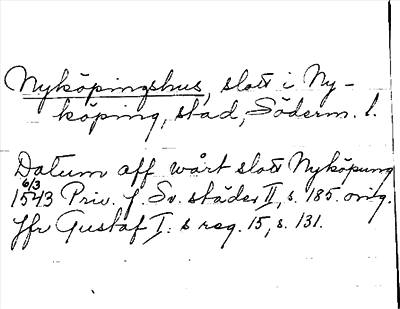 Nyköpingshus, slott i Ny-
köping, stad, Söderm. l.
Datum aff wårt slott Nyköpung
6/3
1543 Priv. f. Sv. städer II, s. 185. orig.
Jfr Gustaf I:s reg. 15, s. 131.